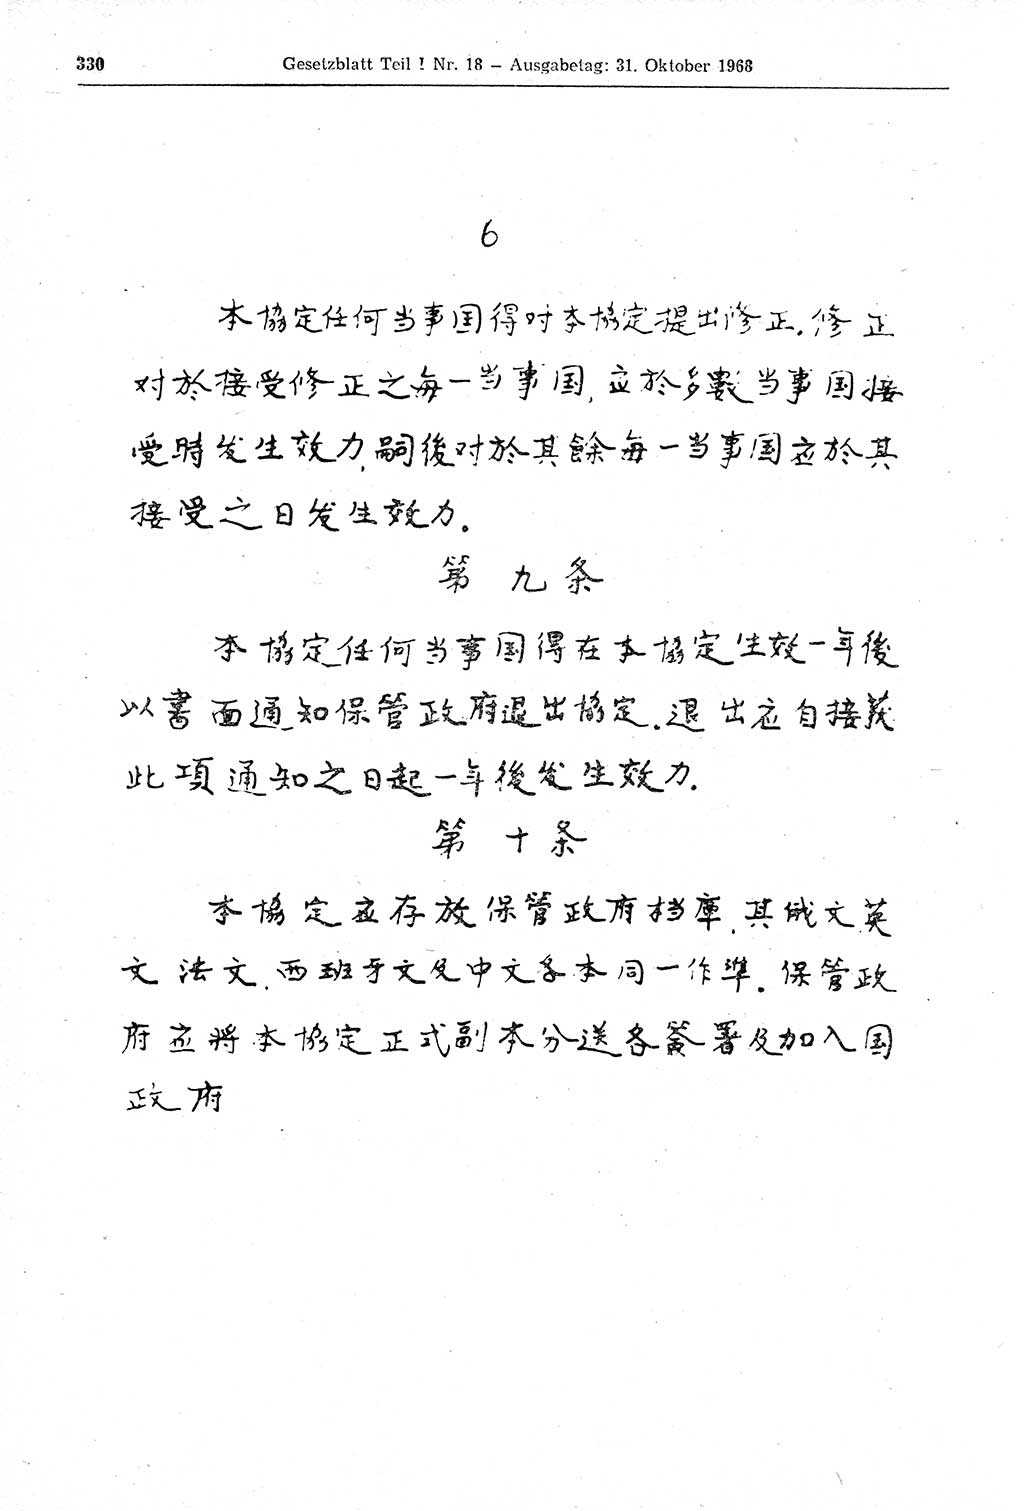 330
Gesetzblatt Teil I Nr. 18 – Ausgabetag: 31. Oktober 1968
6
本協定任何当事国得对本協定提出修正.修正
对於接受修正之每一当事国,应於多數当事国接
受時发生效力,嗣後对於其餘每一当事国应於其
接受之日发生效力。
第 九 条
本協定任何当事国得在本協定生效一年後
以書面通知保管政府退出協定.退出应自接获
此項通知之日起一年後发生效力.
第 十 条
本協定应存放保管政府档庫,其俄文、英
文、法文、西班牙文及中文各本同一作準。保管政
府应將本協定正式副本分送各簽署及加入国
政府